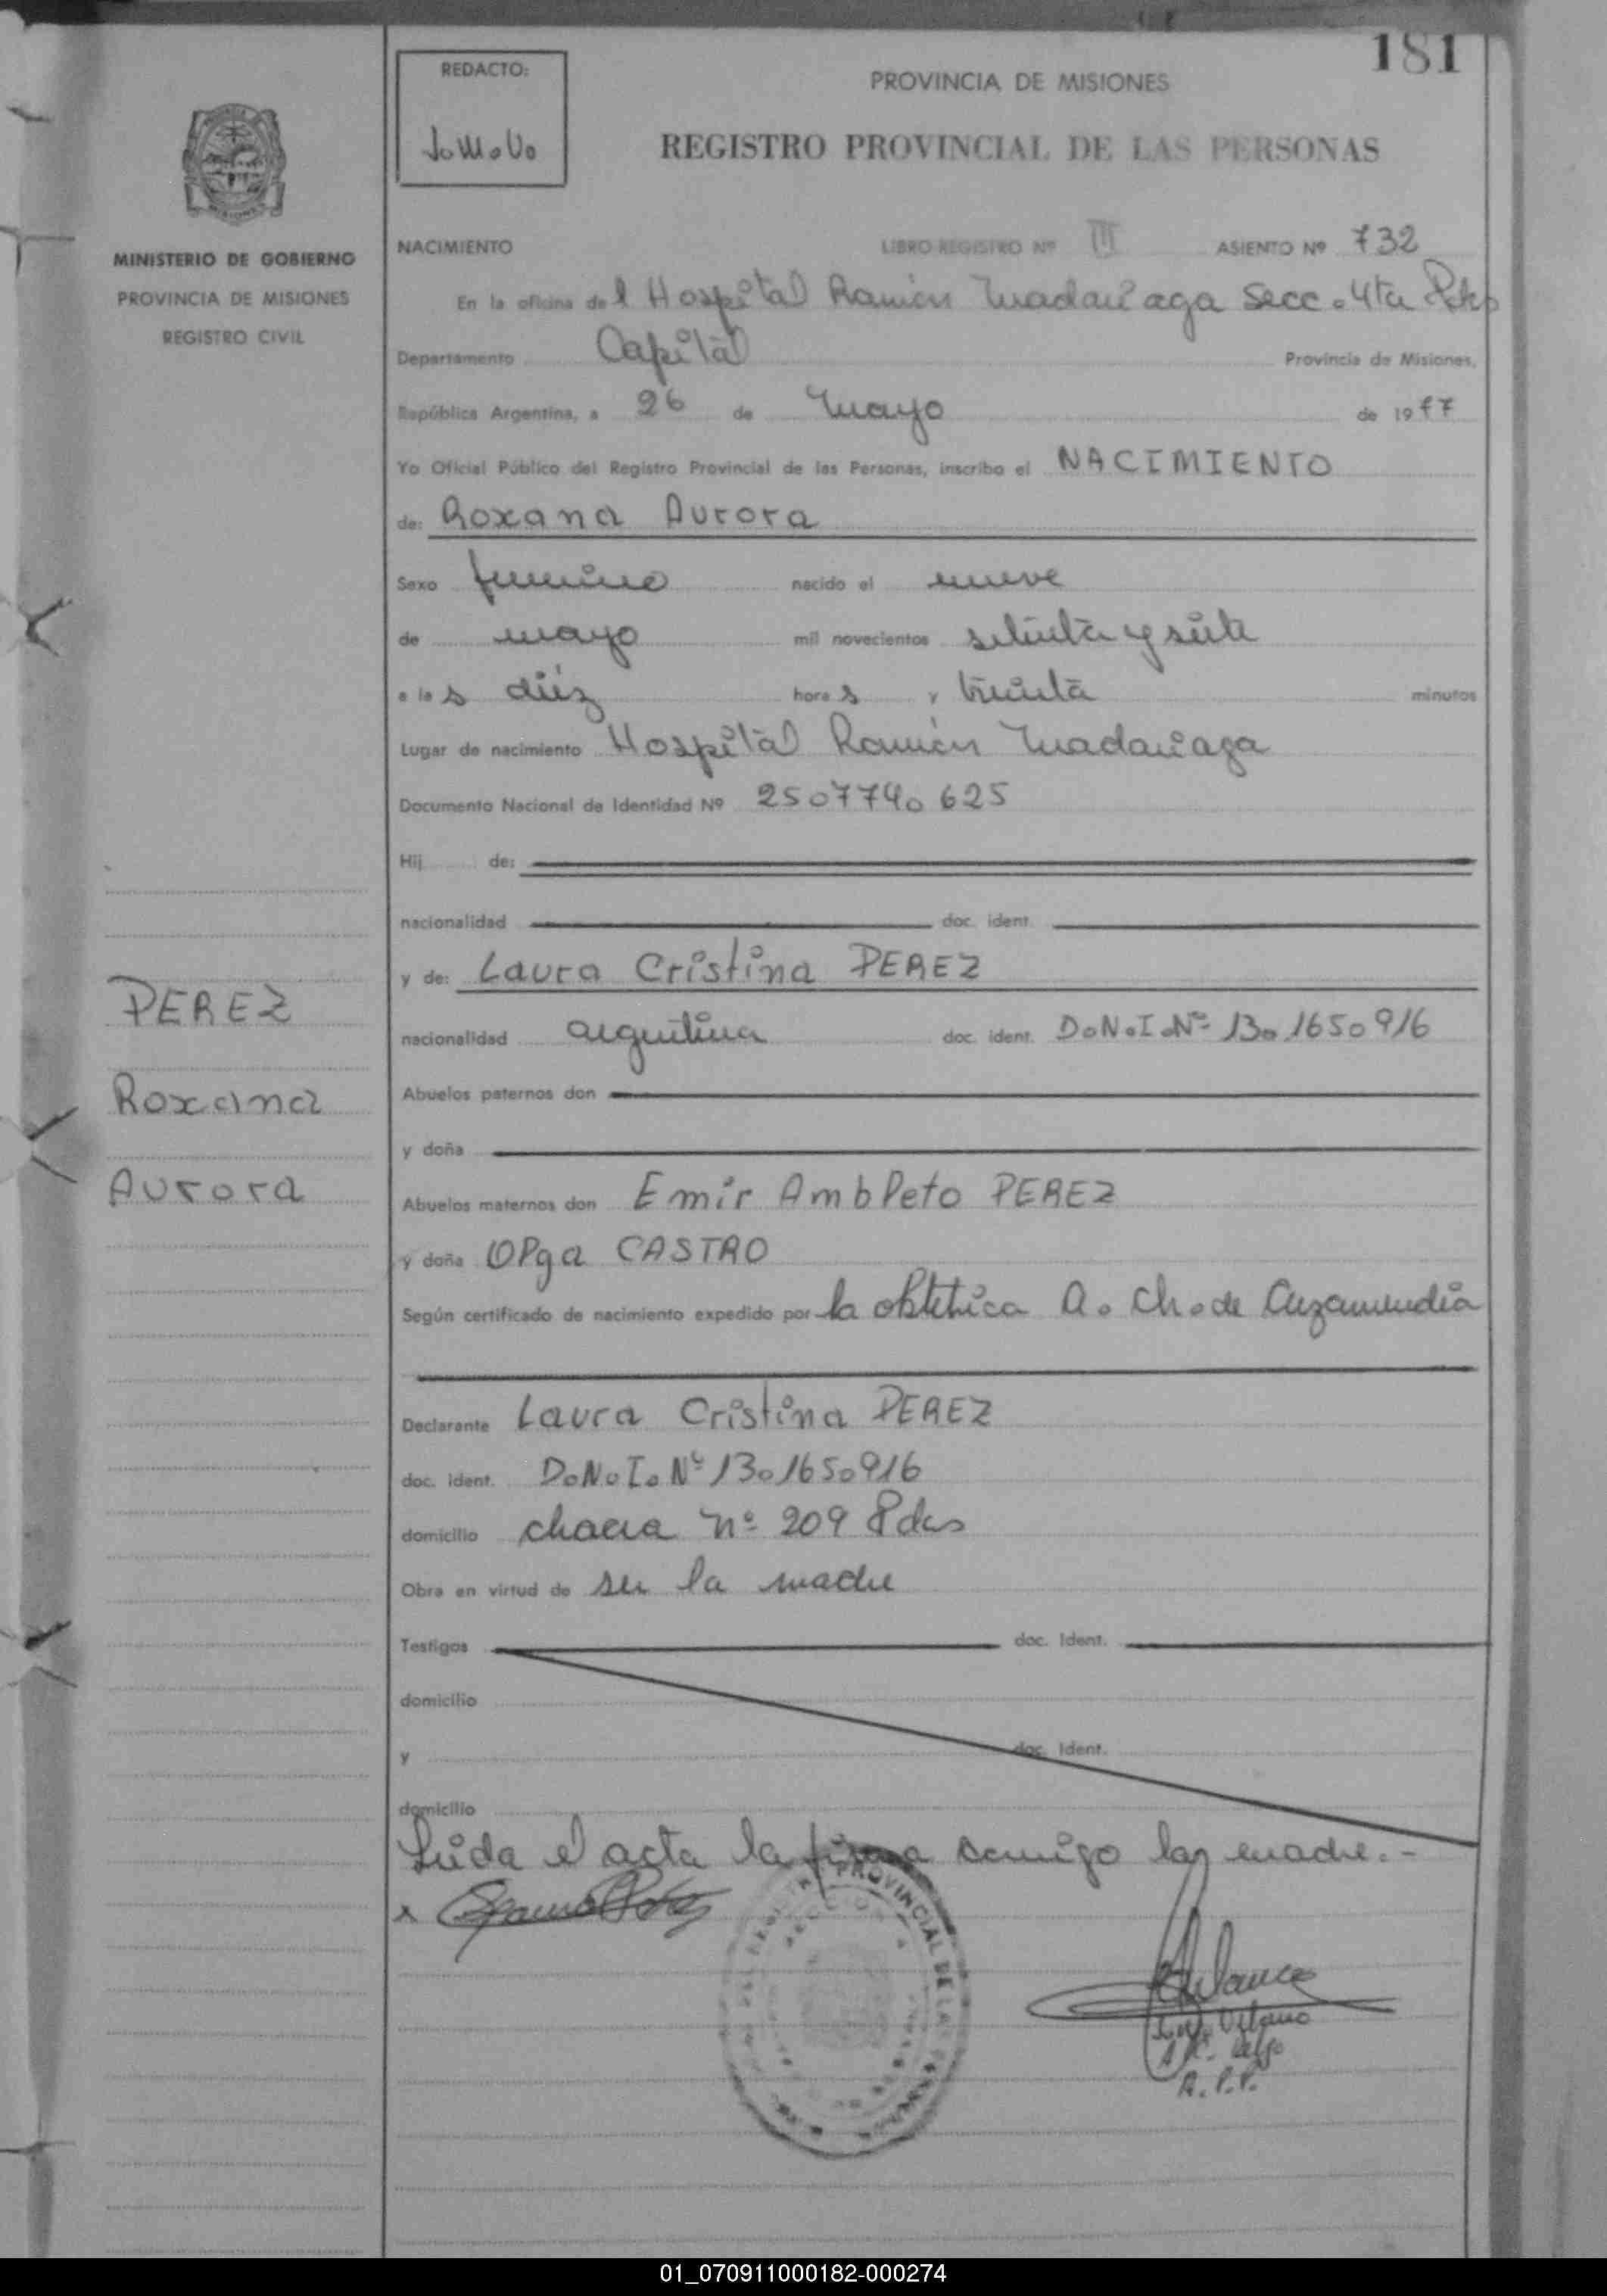 181
REDACTO:
J.M.V.
PROVINCIA DE MISIONES
REGISTRO PROVINCIAL DE LAS PERSONAS
MINISTERIO DE GOBIERNO
PROVINCIA DE MISIONES
REGISTRO CIVIL
NACIMIENTO LIBRO REGISTRO Nº III ASIENTO Nº 732
En la oficina del Hospital Ramón Madariaga Secc. 4ta Pdas
Departamento Capital Provincia de Misiones,
República Argentina, a 26 de Mayo de 1977
Yo Oficial Público del Registro Provincial de las Personas, inscribo el NACIMIENTO
de: Roxana Aurora
Sexo femenino nacido el nueve
de mayo mil novecientos setenta y siete
a las diéz horas y treinta minutos
Lugar de nacimiento Hospital Ramón Madariaga
Documento Nacional de Identidad Nº 25.774.625
Hij de:
nacionalidad doc. ident.
y de: Laura Cristina PEREZ
nacionalidad argentina doc. ident. D.N.I.Nº 13.165.916
Abuelos paternos don
y doña
Abuelos maternos don Emir Ambleto PEREZ
y doña Olga CASTRO
Según certificado de nacimiento expedido por la obstetrica A. Ch. de
Declarante Laura Cristina PEREZ
doc. ident. D.N.I. Nº 13.165.916
domicilio chacra nº 209 Pdas
Obra en virtud de ser la madre
Testigos doc. Ident.
domicilio
y doc. Ident.
domicilio
Leida el acta la firma conmigo la madre.-
x
PROVINCIAL DE LAS
A.P.P.
PEREZ
Roxana
Aurora
01_070911000182-000274